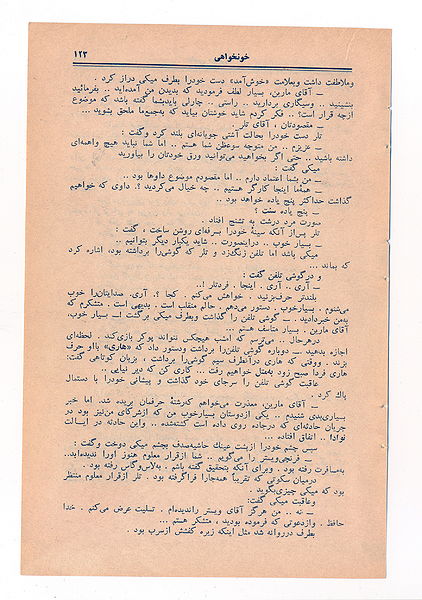 خونخواهی ۱۲۳
وملاطفت داشت وبعلامت «خوش‌آمد» دست خودرا بطرف میکی دراز کرد .
ــ آقای مارین، بسیار لطف فرمودید که بدیدن من آمده‌اید .. بفرمائید
بنشینید .. وسیگاری بردارید .. راستی .. چارلی بایدبشما گفته باشد که موضوع
ازچه قرار است؟ .. فکر کردم شاید خوشتان بیاید که بجمع‌ما ملحق بشوید ...
ــ مقصودتان ، آقای تلر ..
تلر دست خودرا بحالت آشتی جویانه‌ای بلند کرد وگفت :
ــ عزیزم .. من متوجه سوءظن شما هستم .. اما شما نباید هیچ واهمه‌ای
داشته باشید .. حتی اگر بخواهید می‌توانید ورق خودتان را بیاورید
میکی گفت :
ــ من بشما اعتماد دارم .. اما مقصودم موضوع داوها بود ..
ــ همهٔ‌ما اینجا کارگر هستیم .. چه خیال می‌کردید ؟. داوی که خواهیم
گذاشت حداکثر پنج یاده خواهد بود ..
ــ پنج یاده سنت ؟
صورت مرد درشت به تشنج افتاد .
تلر پس‌از آنکه سینهٔ خودرا بسرفه‌ای روشن ساخت ، گفت :
ــ بسیار خوب .. دراینصورت .. شاید یکبار دیگر بتوانیم ..
میکی باشد اما تلفن زنگ‌زد و تلر که گوشی‌را برداشته بود، اشاره کرد
که بماند ...
و درگوشی تلفن گفت :
ــ آری .. آری . اینجا . فردتلر !..
بلندتر حرف‌بزنید . خواهش می‌کنم . کجا ؟. آری. صدایتان‌را خوب
می‌شنوم . بسیارخوب. دستور می‌دهم . حالم منقلب است. بدیهی است . متشکرم که
بمن خبردادید. ـ گوشی تلفن را گذاشت وبطرف میکی برگشت ــ بسیار خوب،
آقای مارین . بسیار متاسف هستم ...
درهرحال .. می‌ترسم که امشب هیچکس نتواند پوکر بازی‌کند . لحظه‌ای
اجازه بدهید ــ دوباره گوشی تلفن‌را برداشت ودستور داد که «هاری» بااو حرف
بزند . ووقتی که هاری درآنطرف سیم گوشی‌را برداشت ، بزبان کوتاهی گفت:
هاری فردا صبح زود به‌متل خواهیم رفت ... کاری کن که دیر نیایی ..
عاقبت گوشی تلفن را سرجای خود گذاشت و پیشانی خودرا با دستمال
پاک کرد .
ــ آقای مارین، معذرت می‌خواهم که‌رشتهٔ حرفمان بریده شد. اما خبر
بسیاری‌بدی شنیدم .. یکی ازدوستان بسیارخوب من که ازشرکای متل‌نیز بود در
جریان حادثه‌ای که درجاده روی داده است کشته‌شده .. واین حادثه در ایالت
نوادا .. اتفاق افتاده ...
سپس چشم خودرا ازپشت عینک حاشیه‌صدف بچشم میکی دوخت وگفت :
ــ فرنچی‌ویستر را می‌گویم .. شما ازقرار معلوم هنوز اورا ندیده‌اید..
به‌مسافرت رفته بود . وبرای آنکه بتحقیق گفته باشم . به‌لاس‌وگاس رفته بود .
درمیان سکوتی که تقریباً همه‌جارا فراگرفته بود . تلر ازقرار معلوم منتظر
بود که میکی چیزی‌بگوید .
وعاقبت میکی گفت:
ــ نه .. من هرگز آقای ویستر راندیده‌ام. تسلیت عرض می‌کنم . خدا
حافظ . وازدعوتی که فرموده بودید ، متشکر هستم ...
بطرف درروانه شد مثل اینکه زیره کفشش ازسرب بود .